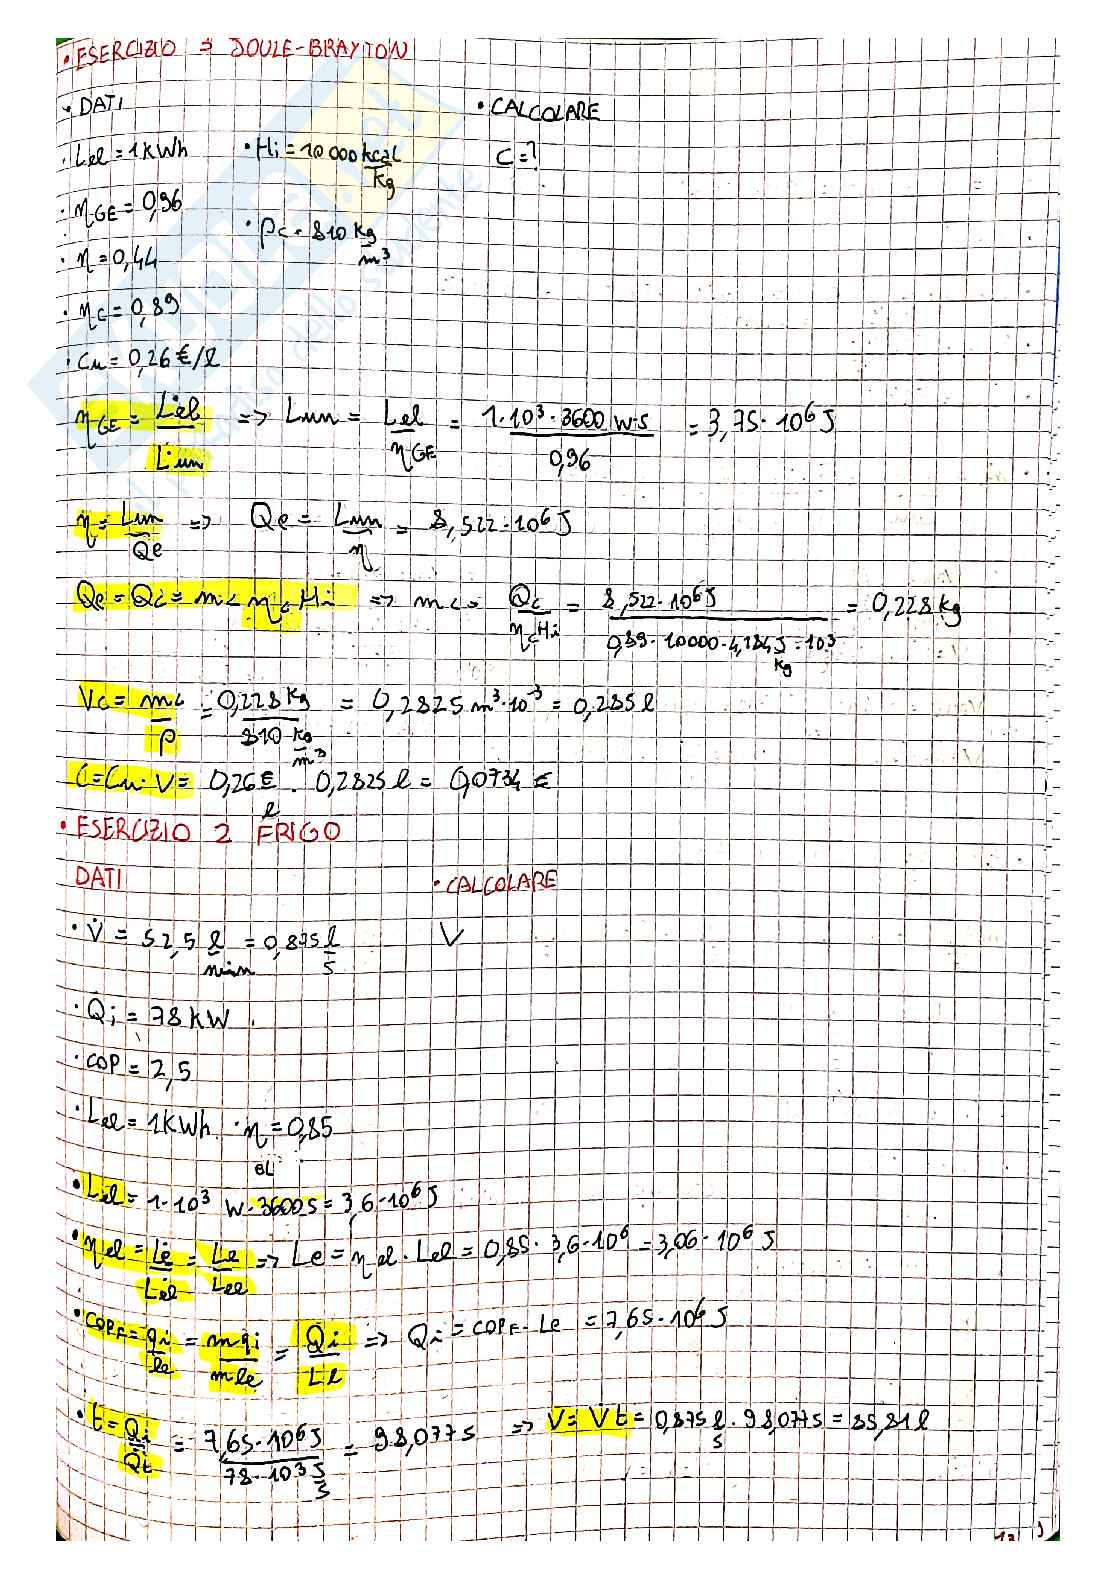 • ESERCIZIO ⇒ JOULE-BRAYTON
• DATI • CALCOLARE
• Lel = 1 KWh • Hi = 10 000 kcal/Kg C = ?
• ηGE = 0,96 • ρc = 810 Kg/m³
• η = 0,44
• ηc = 0,89
• Cu = 0,26 €/l
ηGE = L̇el/L̇un => Lun = Lel/ηGE = 1·10³·3600 W·s/0,96 = 3,75·10⁶ J
η = Lun/Qe => Qe = Lun/η = 8,522·10⁶ J
Qe = Qc = mc ηc Hi => mc = Qc/ηcHi = 8,522·10⁶ J/0,89·10000·4,184 J/kg·10³ = 0,228 kg
Vc = mc/ρ = 0,228 Kg/810 Kg/m³ = 0,2825 m³·10⁻³ = 0,285 l
C = Cu·V = 0,26 €/l · 0,2825 l = 0,0734 €
• ESERCIZIO 2 FRIGO
DATI • CALCOLARE
• V̇ = 52,5 l/min = 0,875 l/s V
• Q̇i = 78 KW
• COP = 2,5
• Lel = 1 KWh • ηel = 0,85
• Lel = 1·10³ W·3600 s = 3,6·10⁶ J
• ηel = L̇e/L̇el = Le/Lel => Le = ηel · Lel = 0,85 · 3,6·10⁶ = 3,06·10⁶ J
• COPF = qi/le = mqi/mle = Qi/Le => Qi = COPF · Le = 7,65·10⁶ J
• t = Qi/Q̇i = 7,65·10⁶ J/78·10³ J/s = 98,077 s => V = V̇ t = 0,875 l/s · 98,077 s = 85,81 l